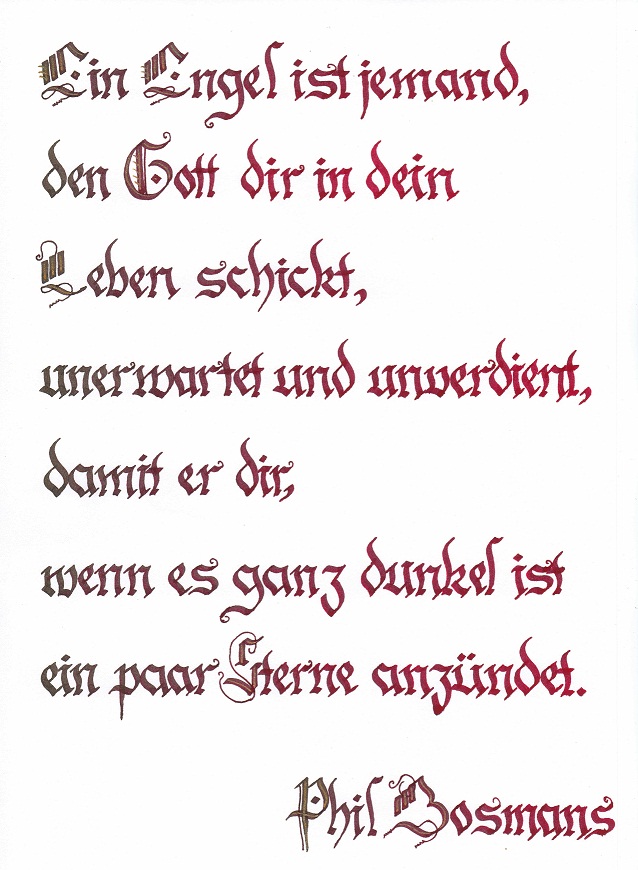 Ein Engel ist jemand,
den Gott dir in dein
Leben schickt,
unerwartet und unverdient,
damit er dir,
wenn es ganz dunkel ist
ein paar Sterne anzündet.
Phil Bosmans